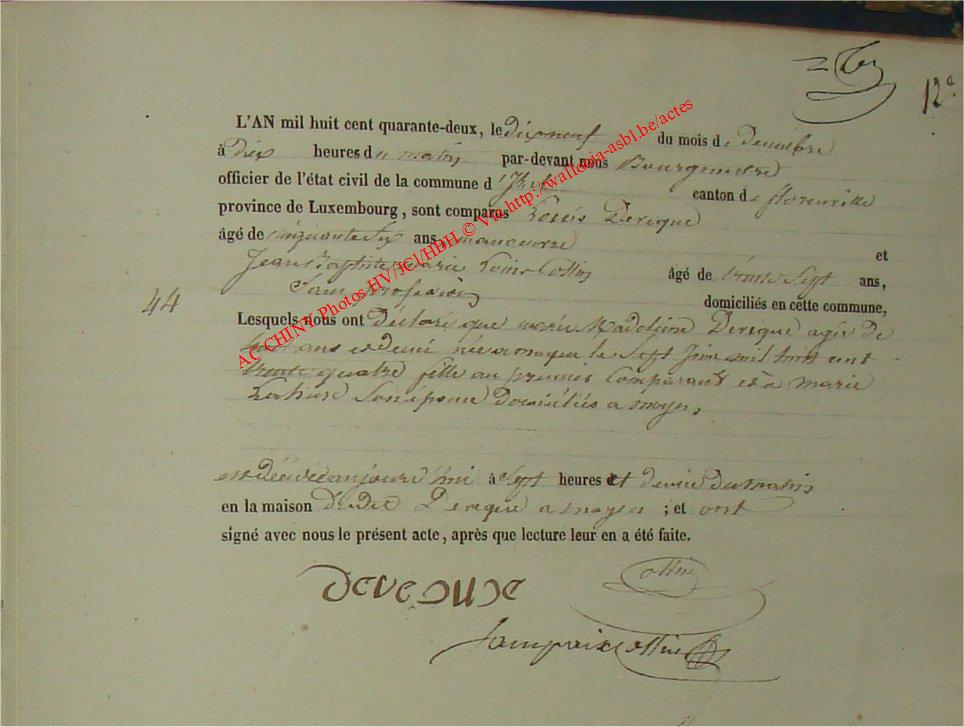 12e
L'AN mil huit cent quarante-deux, le dix neuf du mois de decembre
à Dix heures du matin par-devant nous Bourgmestre
officier de l'état civil de la commune d'Izel canton de florenville
province de Luxembourg, sont comparus Louis Dereque
âgé de cinquante six ans, manoeuvre et
Jean Baptiste marie Louis Collin âgé de trente Sept ans,
Sans profession domiciliés en cette commune,
44
Lesquels nous ont déclaré que marie Madeleine Dereque agée de
huit ans et demi née a moyen le Sept Juin mil huit cent
trente quatre fille au premier Comparant et a marie
Son épouse Domiciliés a moyen,
est décédée aujourd'hui à Sept heures et demie du matin
en la maison Dudit Dereque a moyen ; et ont
signé avec nous le présent acte, après que lecture leur en a été faite.
Collin
Jampaix Collin
AC CHINY Photos HV/JCl/HBH © Via http://wallonia-asbl.be/actes